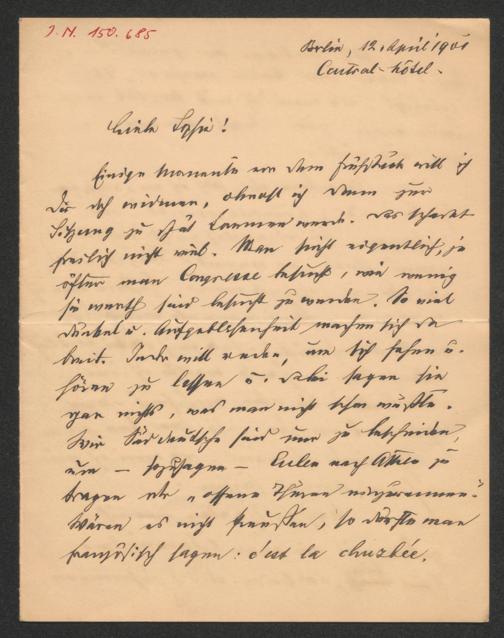 J. N. 150.685
Berlin, 12. April 1901
Central-Hôtel.
Liebe Sophie!
Einige Momente vor dem Frühstück will ich
Dir doch widmen, obwohl ich dann zur
Sitzung zu spät kommen werde. Das schadet
freilich nicht viel. Man sieht eigentlich, je
öfter man Congresse besucht, wie wenig
sie werth sind besucht zu werden. So viel
Dünkel u. Aufgeblasenheit machen sich da
breit. Jeder will reden, um sich sehen u.
hören zu lassen u. dabei sagen sie
gar nichts, was man nicht schon wüßte.
Wir Süddeutsche sind nur zu bescheiden,
um – sozusagen – Eulen nach Athen zu
tragen oder „offene Thüren einzurennen".
Wären es nicht Preußen, so dürfte man
französisch sagen: c'est la chuzbée.